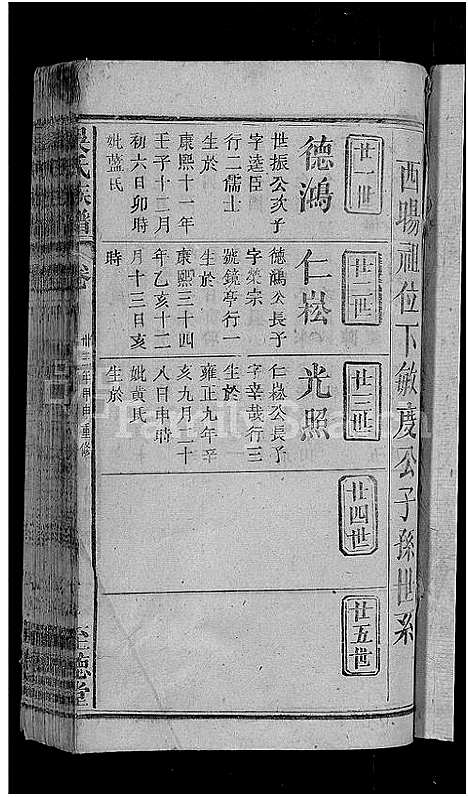 西暘祖位下敏度公子孫世系
廿一世
德鴻
世振公次子
字逵臣
行二儒士
生於
康熙十一年
壬子十二月
初六日卯時
妣藍氏
廿二世
仁崧
德鴻公長子
字榮宗
號鏡亭行一
生於
康熙三十四
年乙亥十二
月十三日亥
時
廿三世
光照
仁崧公長子
字宰哉行三
生於
雍正九年辛
亥九月二十
八日申時
妣黄氏
生於
廿四世
廿五世
吳氏族譜
卷
年甲申重修
至德堂